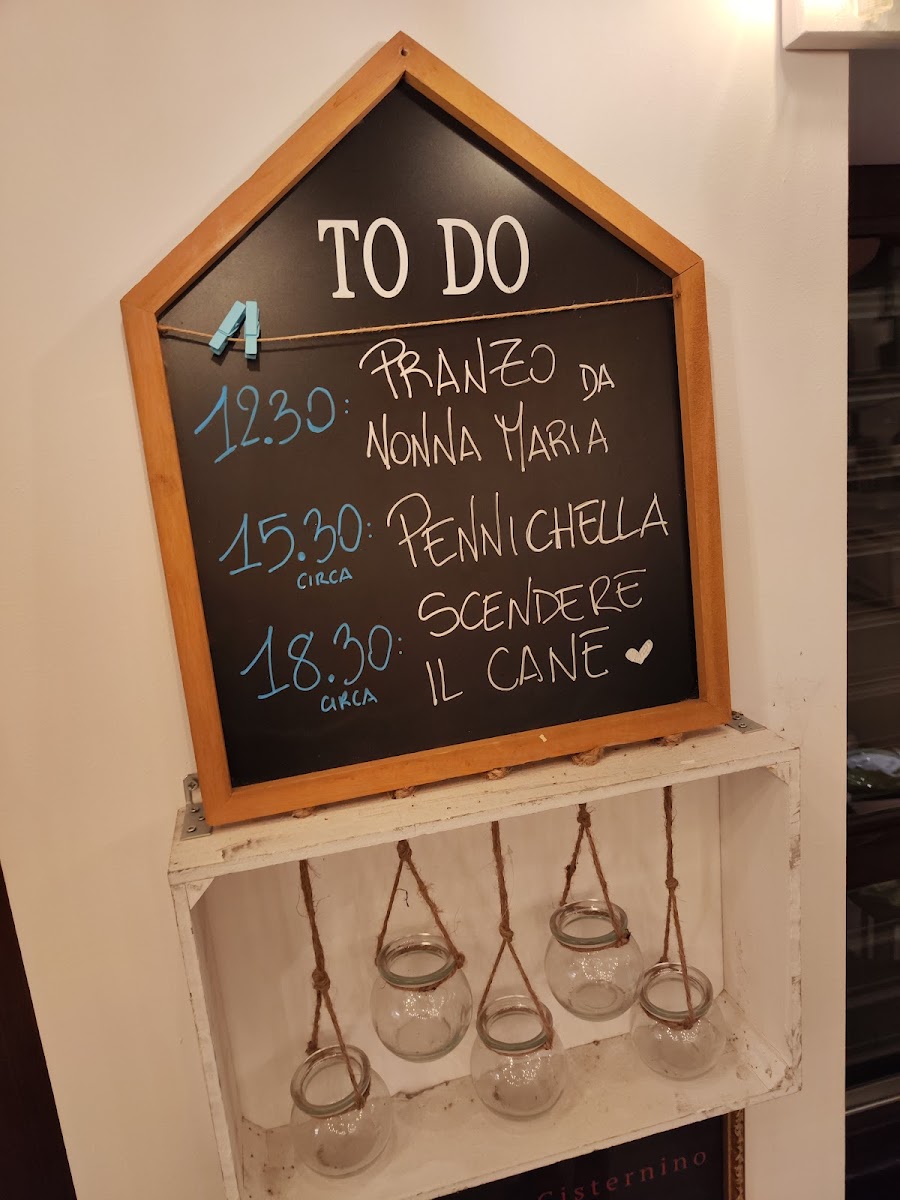 TO DO
12.30: PRANZO DA
NONNA MARIA
15.30: PENNICHELLA
CIRCA
SCENDERE
18.30: IL CANE
CIRCA
Cisternino